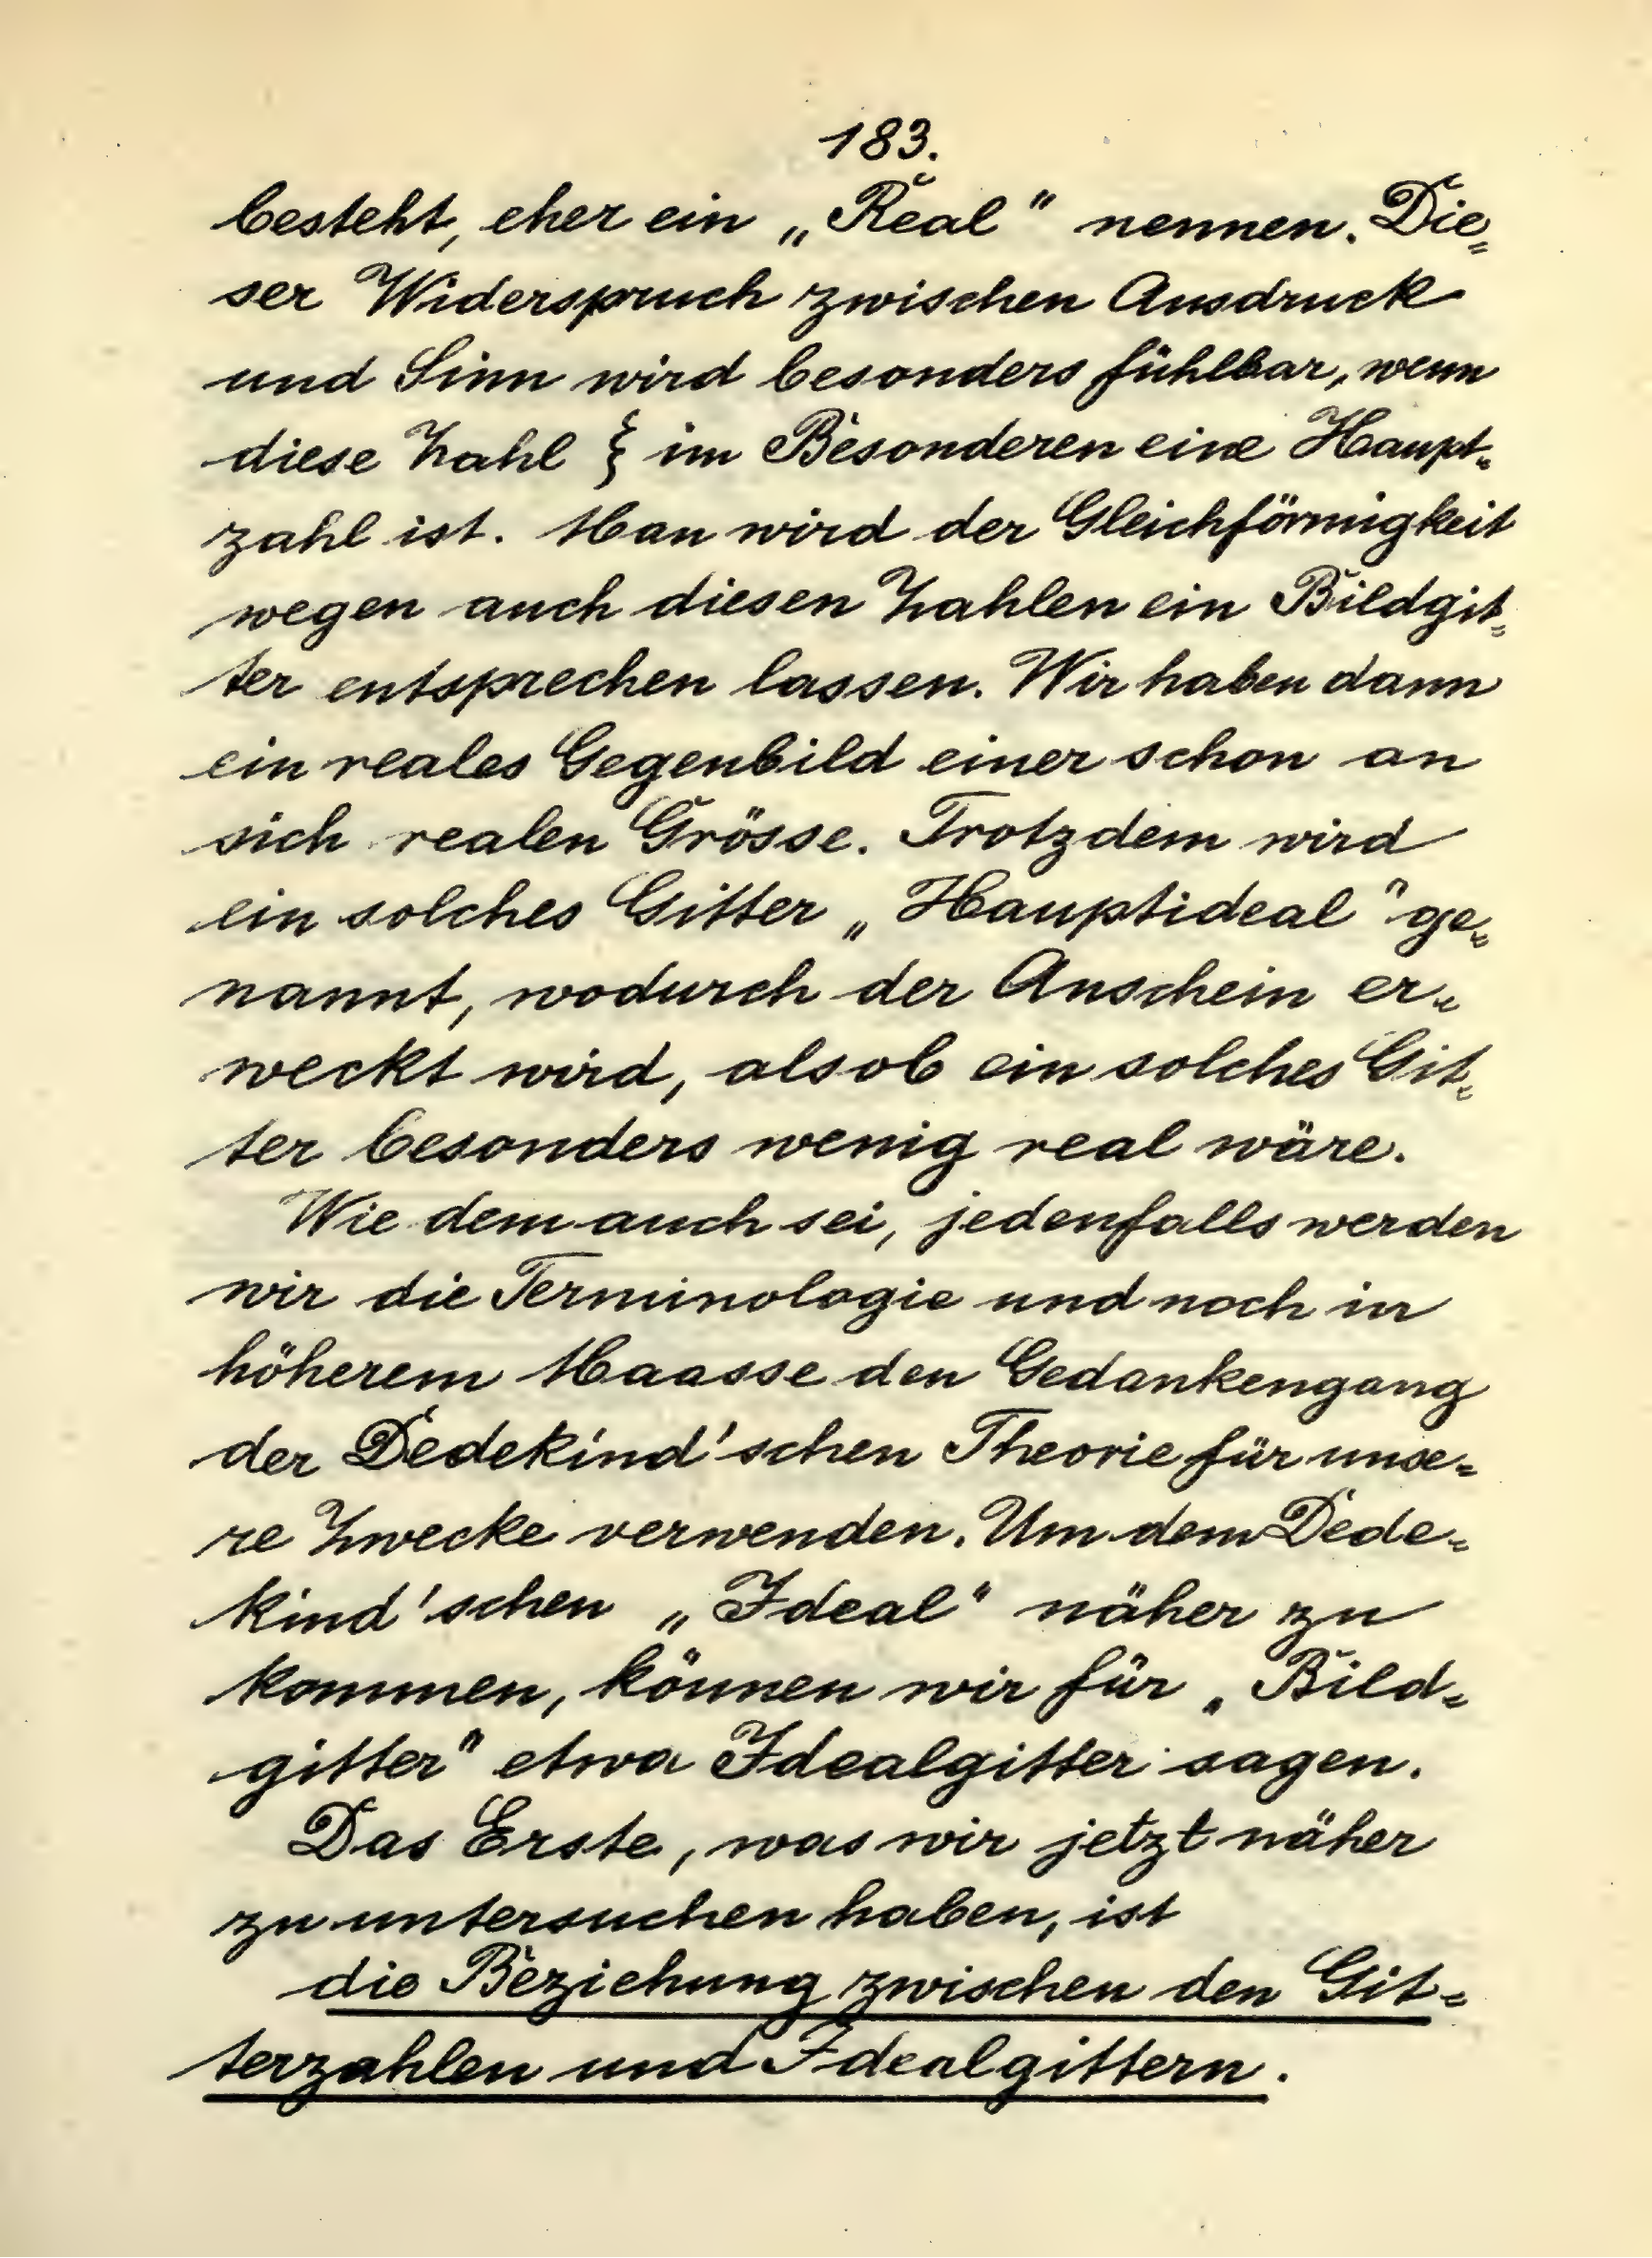 183.
besteht, eher ein „Real" nennen. Die=
ser Widerspruch zwischen Ausdruck
und Sinn wird besonders fühlbar, wenn
diese Zahl ξ im Besonderen eine Haupt=
zahl ist. Man wird der Gleichförmigkeit
wegen auch diesen Zahlen ein Bildgit=
ter entsprechen lassen. Wir haben dann
ein reales Gegenbild einer schon an
sich realen Grösse. Trotzdem wird
ein solches Gitter „Hauptideal" ge=
nannt, wodurch der Anschein er=
weckt wird, als ob ein solches Git=
ter besonders wenig real wäre.
Wie dem auch sei, jedenfalls werden
wir die Terminologie und noch in
höherem Maasse den Gedankengang
der Dedekind'schen Theorie für unse=
re Zwecke verwenden. Um dem Dede=
kind'schen „Ideal" näher zu
kommen, können wir für „Bild=
gitter" etwa Idealgitter sagen.
Das Erste, was wir jetzt näher
zu untersuchen haben, ist
die Beziehung zwischen den Git=
terzahlen und Idealgittern.